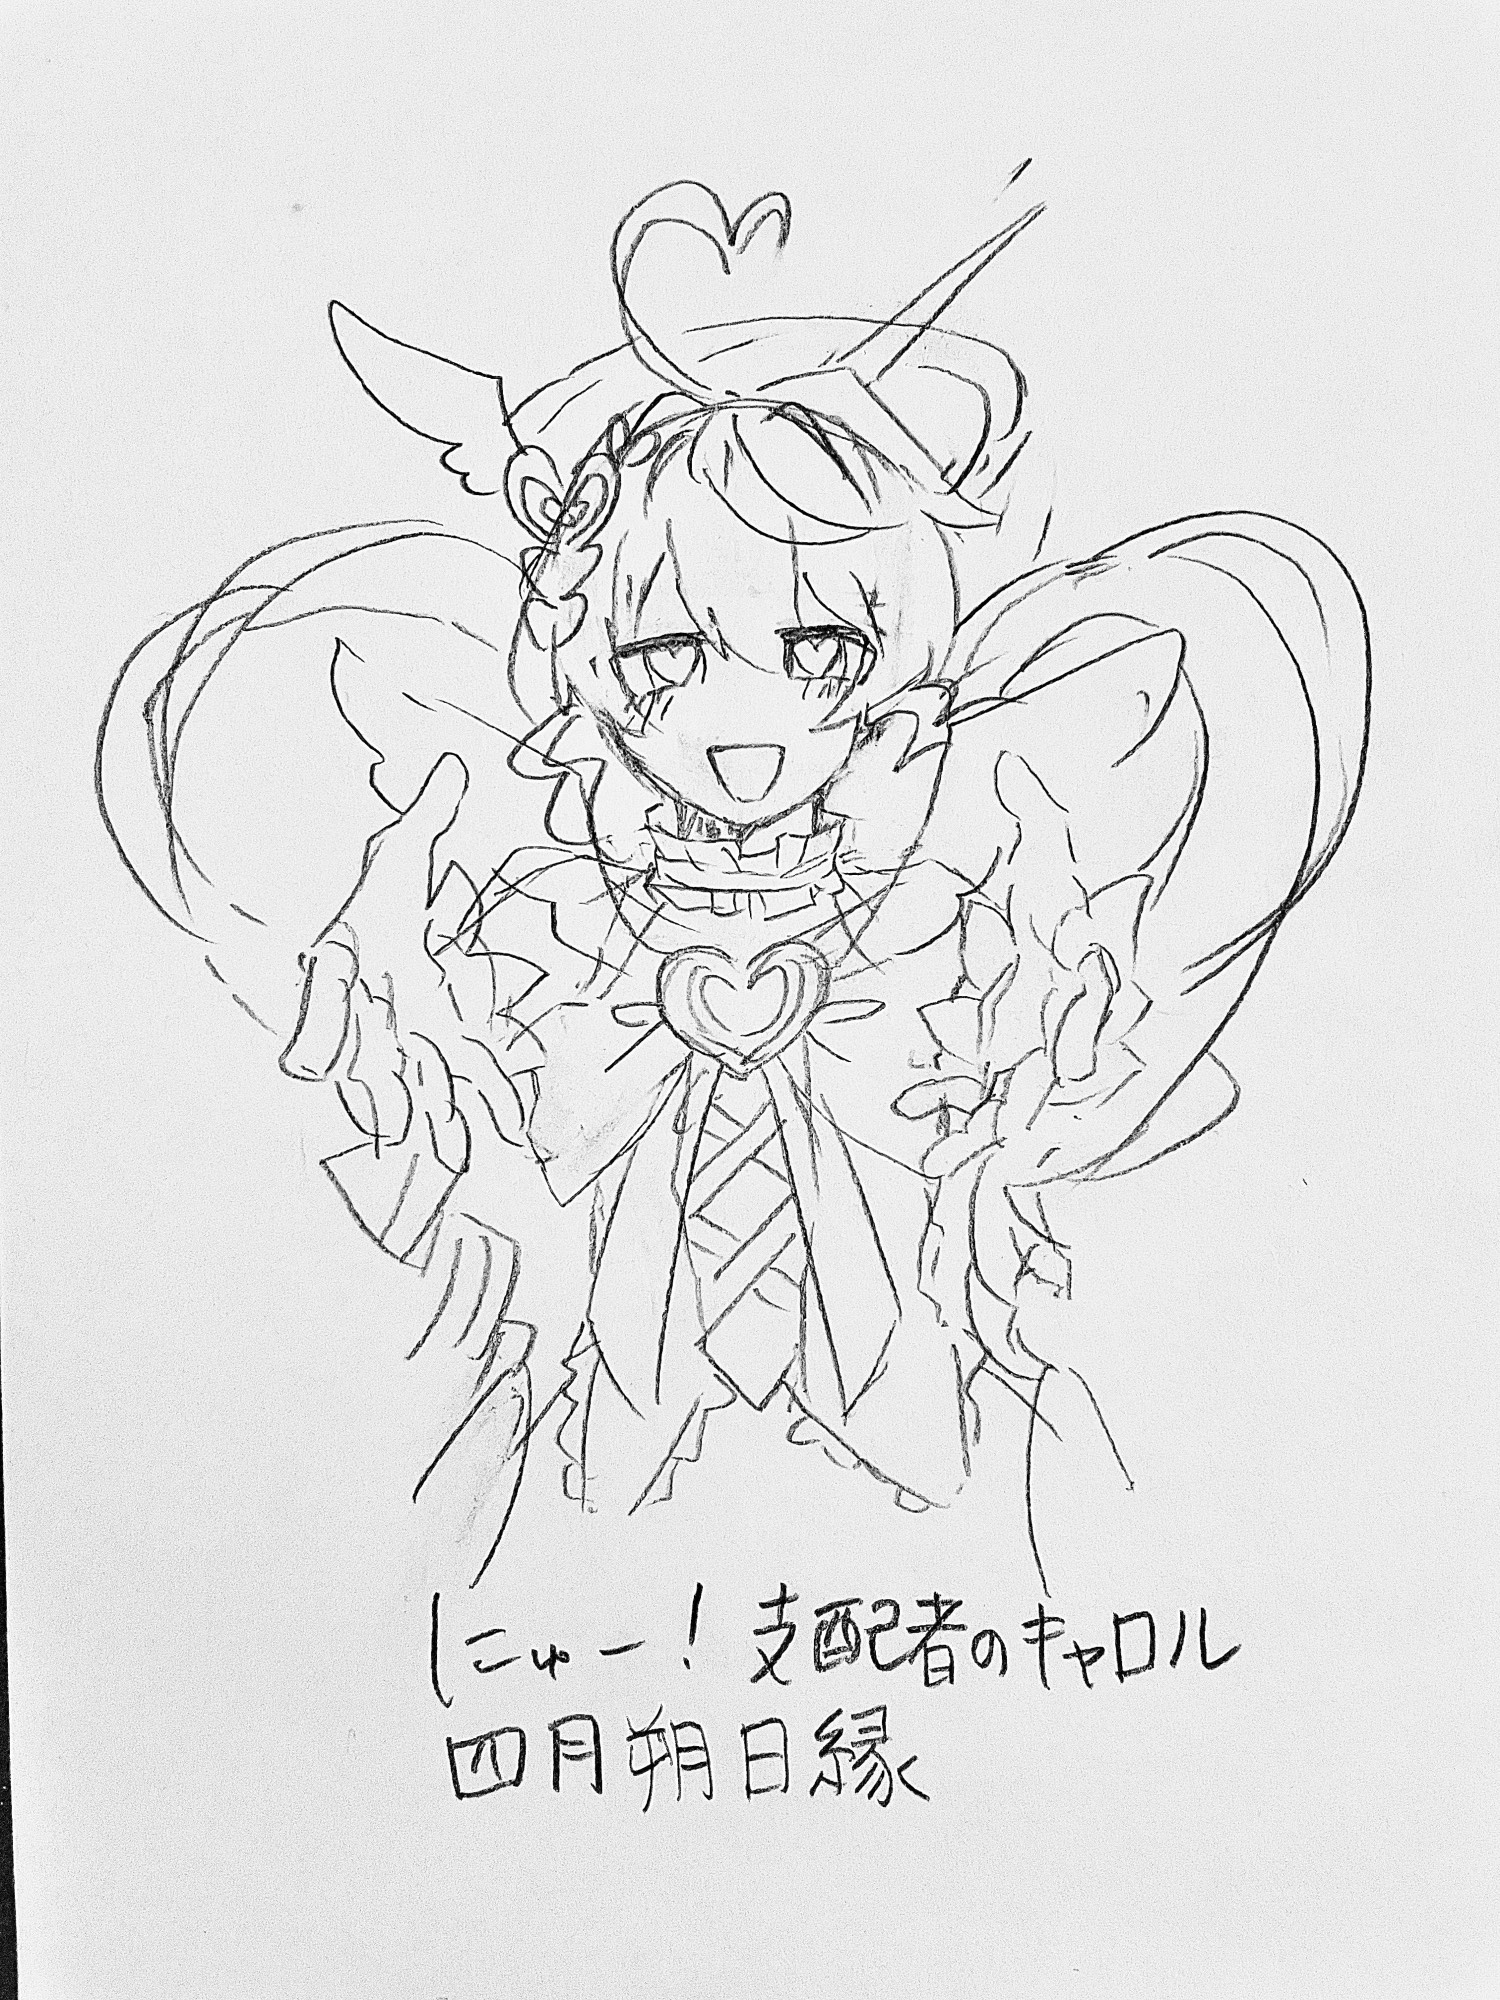 にゅー！支配者のキャロル
四月朔日縁